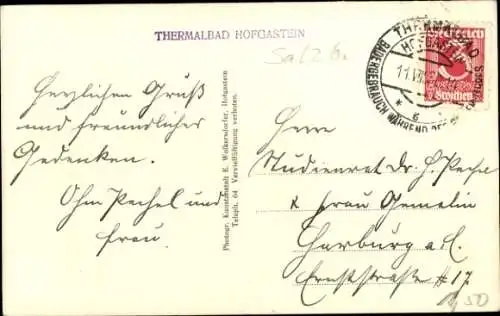 THERMALBAD HOFGASTEIN
Salzb.
Herzlichen Gruß
und freundliches
Gedenken.
Ohm Pechel und
Frau.
Photogr. Kunstanstalt E. Wolkersdorfer, Hofgastein
Teleph. 64 Vervielfältigung verboten.
THERMALBAD
HOFGAST
11.VII
6
BÄDERGEBRAUCH WÄHREND DES
Oesterreich
5
Groschen
Herrn
Studienrat Dr. H. Pechel
& Frau Gemelin
Harburg a. E.
Ernststraße # 17
50